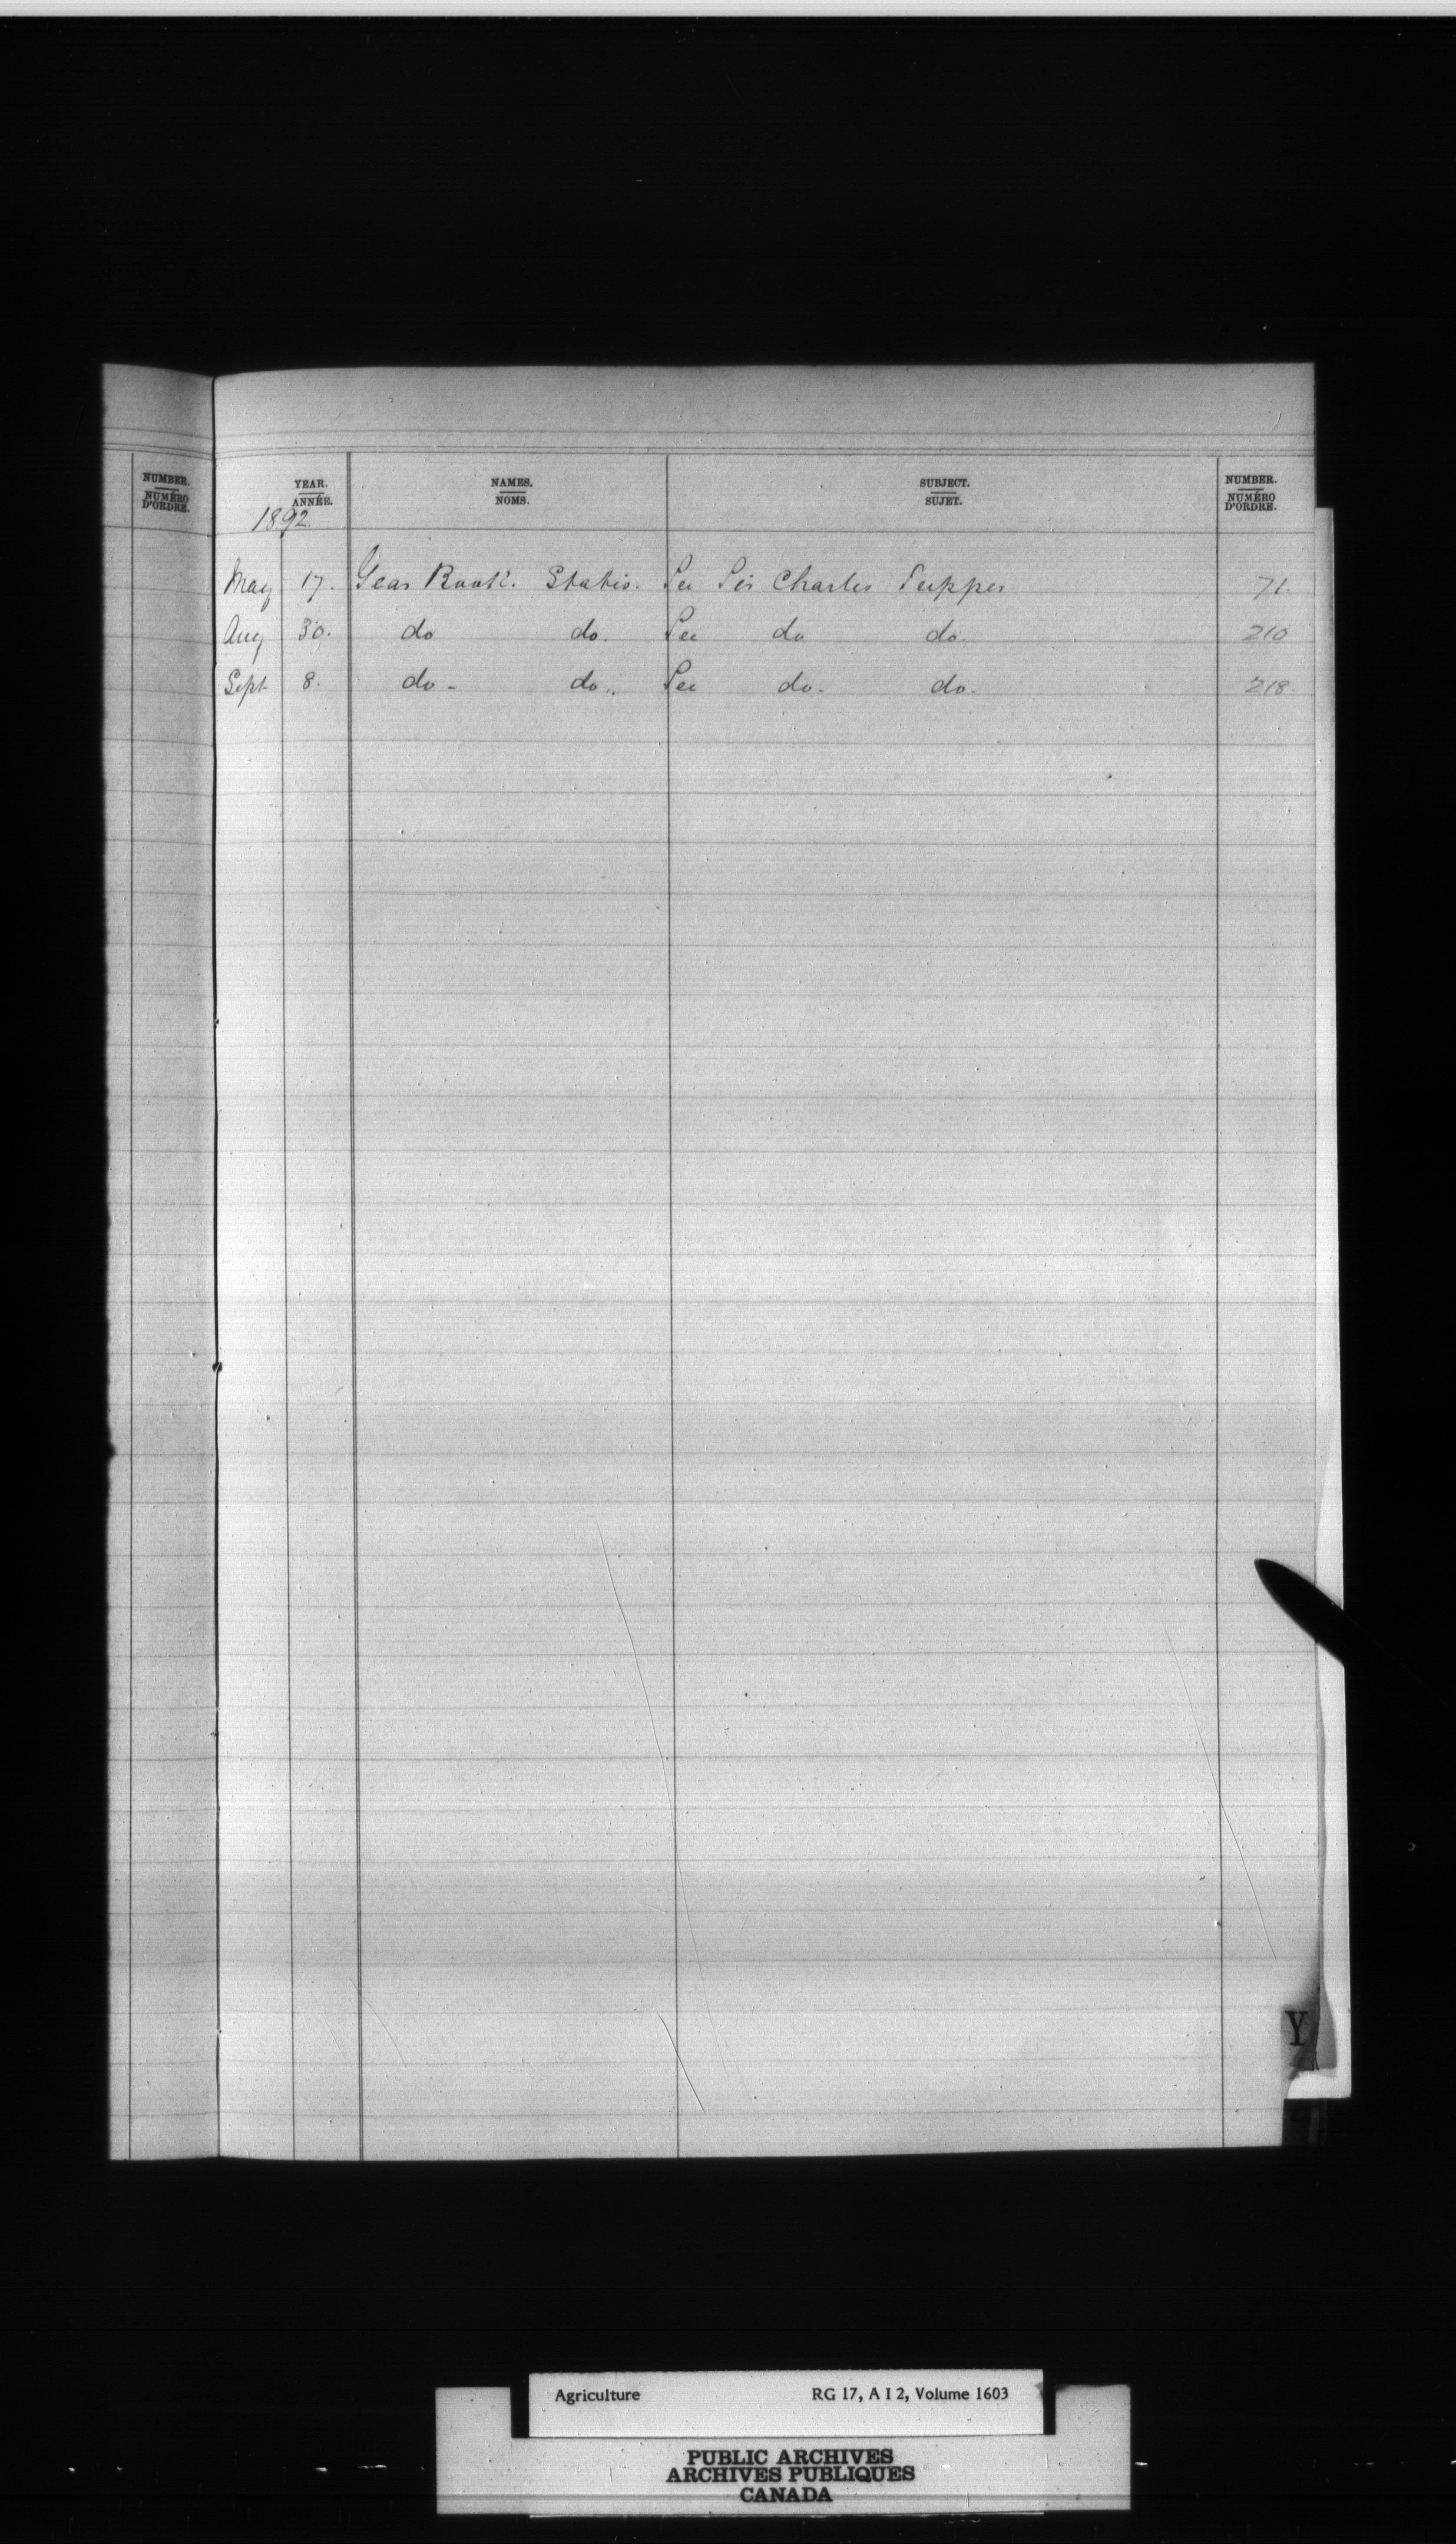 NUMBER. YEAR. NAMES. SUBJECT. NUMBER.
NUMÉRO D'ORDRE. ANNÉE. NOMS. SUJET. NUMÉRO D'ORDRE.
1892.
May 17. Year Book. Statis. See Sir Charles Tupper 71.
Aug 30. do do. See do do. 210
Sept 8. do - do.. See do. do. 218.
Y
Agriculture RG 17, A I 2, Volume 1603
PUBLIC ARCHIVES
ARCHIVES PUBLIQUES
CANADA